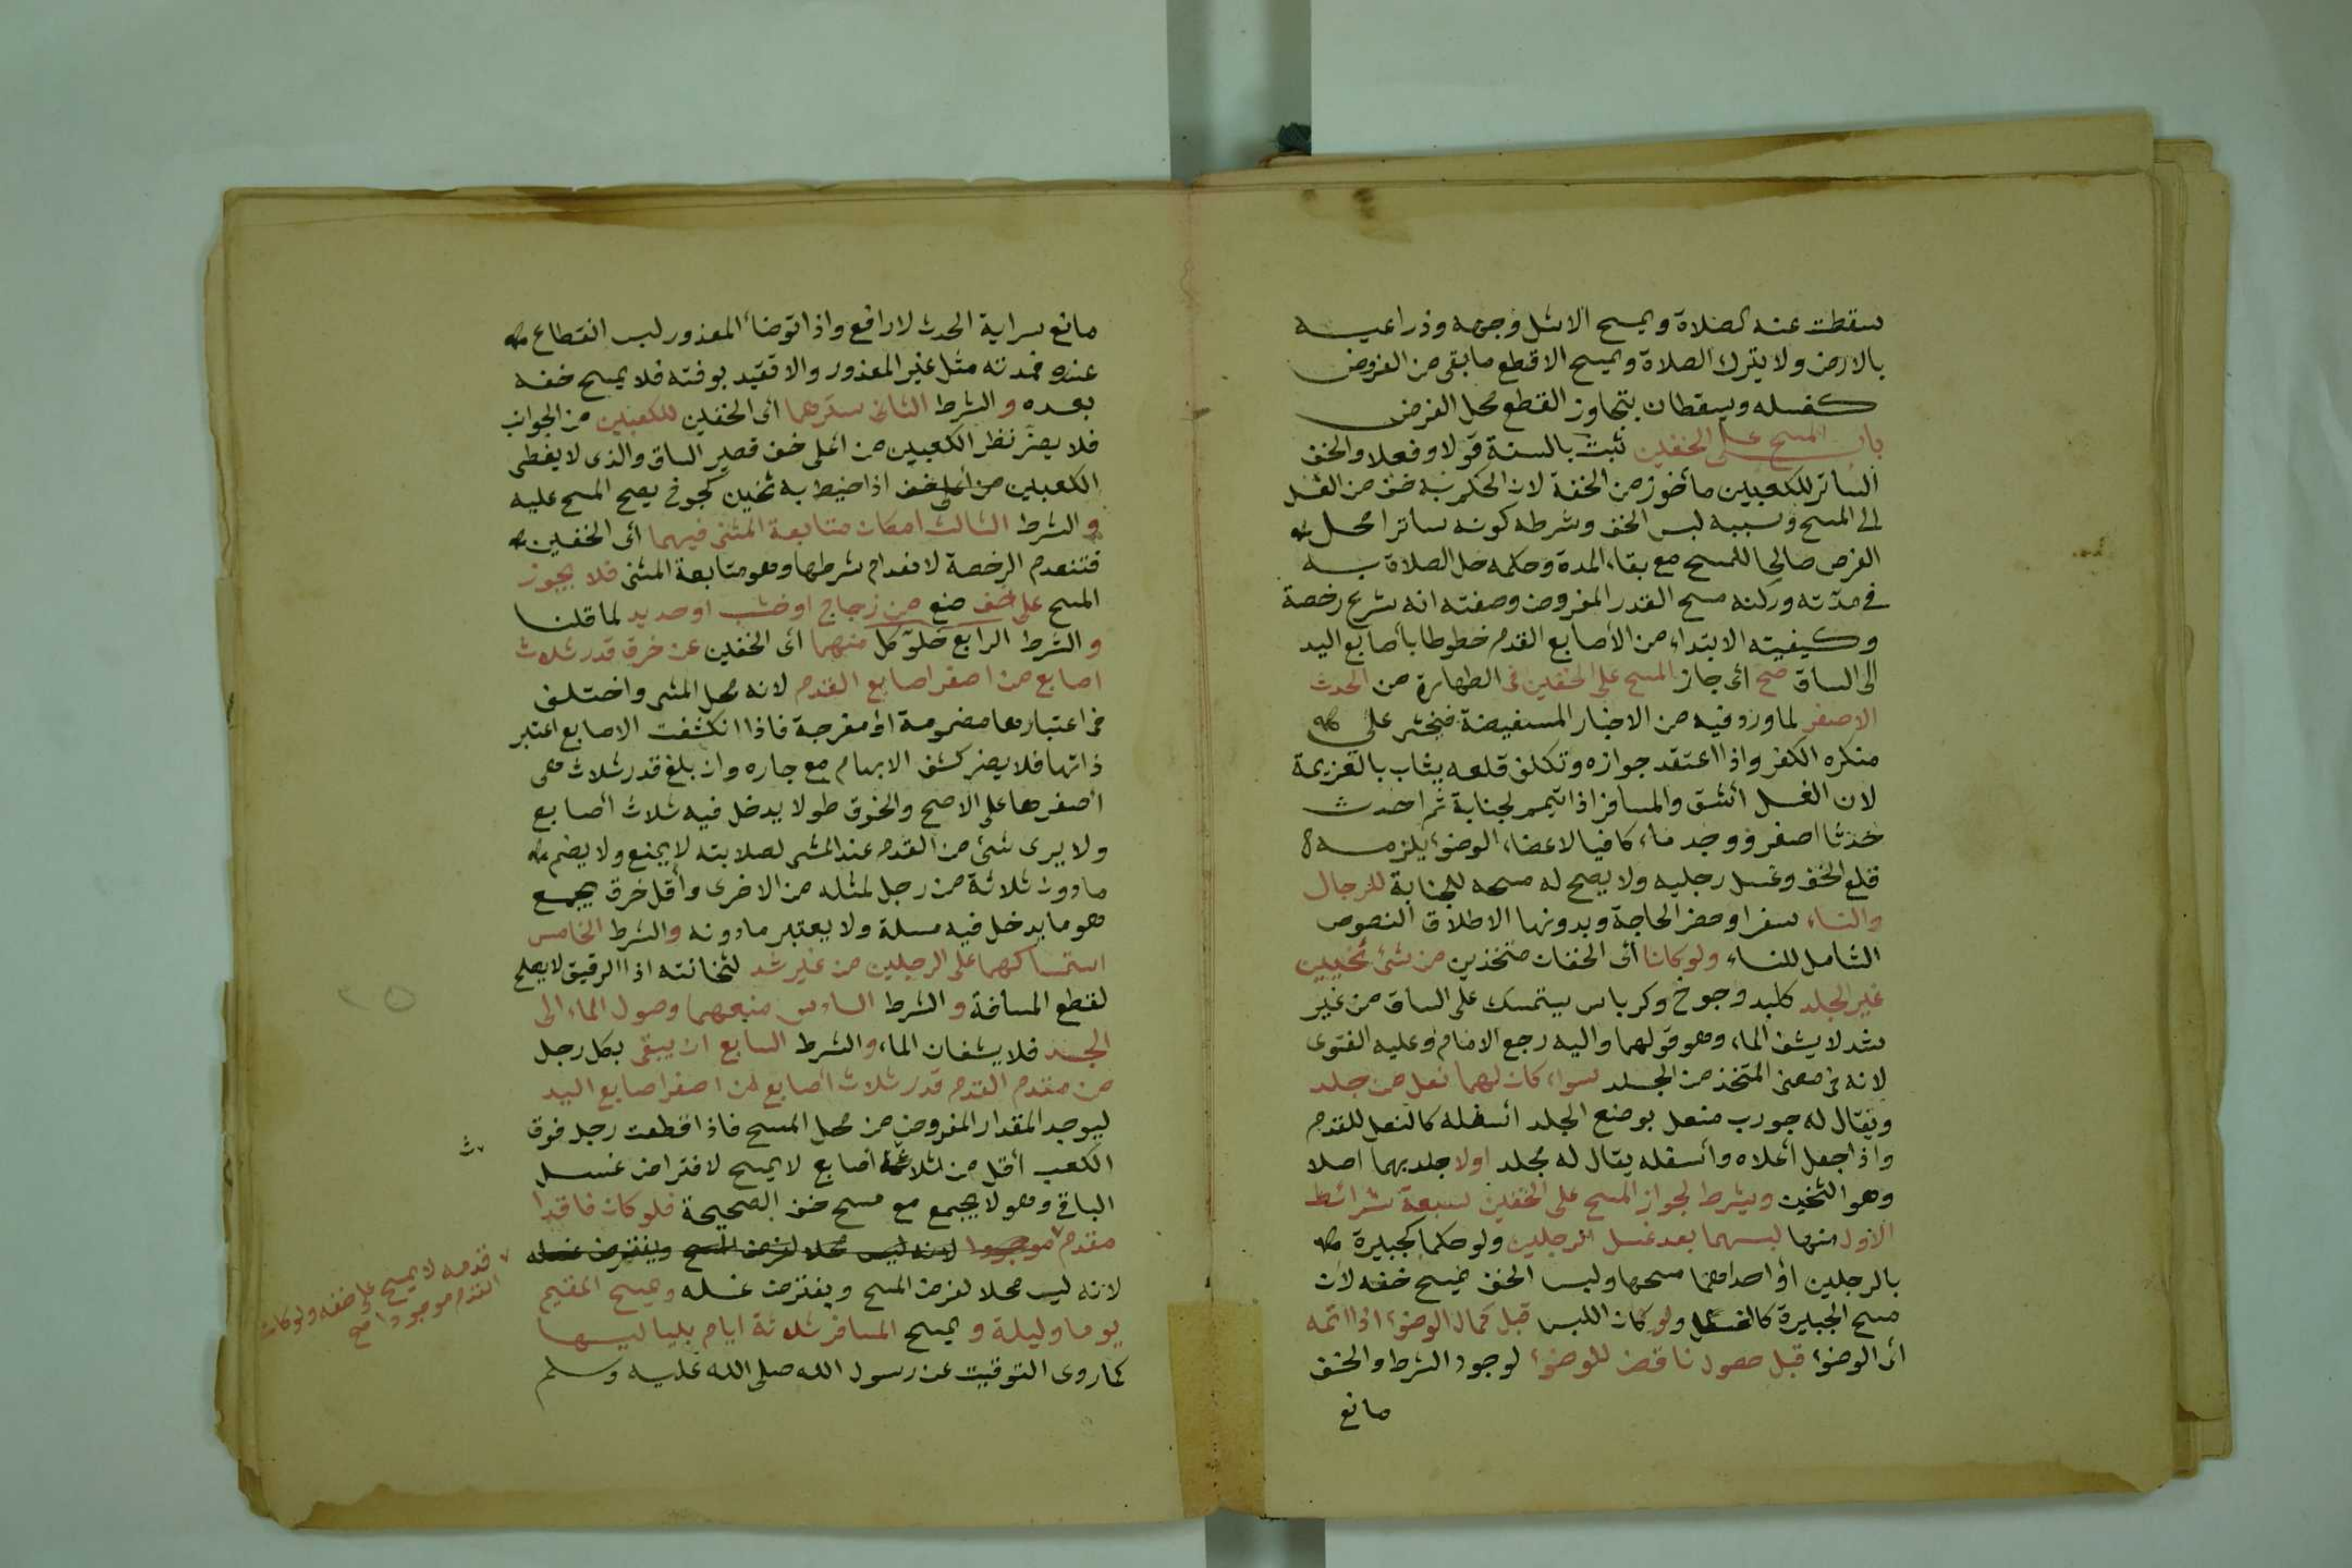 سقطت عنه الصلاة ويمسح الاشل وجهه وذراعيه
بالارض ولا يترك الصلاة ويمسح الاقطع ما بقى من الفرض
كغسله ويسقطان بتجاوز القطع محل الفرض
باب المسح على الخفين ثبت بالسنة قولا وفعلا والخف
الساتر للكعبين مأخوذ من الخفة لان الحكم به خف من الغسل
الى المسح وسببه لبس الخف وشرطه كونه ساترا محل
الفرض صالحا للمسح مع بقاء المدة وحكمه حل الصلاة به
فى مدّته وركنه مسح القدر المفروض وصفته انه شرع رخصة
وكيفيته الابتداء من الأصابع القدم خطوطا بأصابع اليد
الى الساق صح أى جاز المسح على الخفين فى الطهارة من الحدث
الاصغر لما ورد فيه من الاخبار المستفيضة فيخشى على
منكره الكفر واذا اعتقد جوازه وتكلف قلعه يثاب بالعزيمة
لان الغسل أشق والمسافر اذا تيمم لجنابة ثم احدث
حدثا اصغر ووجد ماء كافيا لاعضاء الوضوء يلزمه
قلع الخف وغسل رجليه ولا يصح له مسحه للجنابة للرجال
والنساء سفرا وحضر الحاجة وبدونها الاطلاق النصوص
الشامل للنساء ولو كانا أى الخفان متخذين من شئ ثخيين
غير الجلد كلبد وجوخ وكرباس يستمسك على الساق من غير
شد لا يشف الماء وهو قولهما واليه رجع الامام وعليه الفتوى
لانه فى معنى المتخذ من الجلد سواء كان لهما نعل من جلد
ويقال له جورب منعل بوضع الجلد أسفله كالنعل للقدم
واذا جعل أعلاه وأسفله يقال له مجلد اولا جلد بهما اصلا
وهو الثخين ويشرط لجواز المسح على الخفين سبعة شرائط
الاول منها لبسهما بعد غسل الرجلين ولو حكما كجبيرة
بالرجلين أو احداهما مسحها ولبس الخف يمسح خفه لان
مسح الجبيرة كالغسل ولو كان اللبس قبل كمال الوضوء اذا اتمه
أى الوضوء قبل حصول ناقض للوضوء لوجود الشرط والخف
مانع
مانع سراية الحدث لا رافع واذا توضأ المعذور لبس انقطاع
عذره فمدته مثل غير المعذور والا تقيد بوقته فلا يمسح خفه
بعده و الشرط الثانى سترهما أى الخفين للكعبين من الجوانب
فلا يضر نظر الكعبين من أعلى خف قصير الساق والذى لا يغطى
الكعبين من أعلى خف اذا خيط به ثخين كجوخ يصح المسح عليه
و الشرط الثالث امكان متابعة المشى فيهما أى الخفين
فتنعدم الرخصة لانعدام شرطها وهو متابعة المشى فلا يجوز
المسح على خف صنع من زجاج او خشب او حديد لما قلنا
و الشرط الرابع خلوّ كل منهما أى الخفين عن خرق قدر ثلاث
اصابع من اصغر اصابع القدم لانه محل المشى واختلف
فى اعتبارها مضمومة أو مفرجة فاذا انكشفت الاصابع اعتبر
ذاتها فلا يضر كشف الابهام مع جاره وان بلغ قدر ثلاث هى
أصغرها على الاصح والخرق طولا يدخل فيه ثلاث أصابع
ولا يرى شئ من القدم عند المشى لصلابته لا يمنع ولا يضم
ما دون ثلاثة من رجل لمثله من الاخرى وأقل خرق يجمع
هو ما يدخل فيه مسلة ولا يعتبر ما دونه والشرط الخامس
استمساكهما على الرجلين من غير شد لثخانته اذا الرقيق لا يصلح
لقطع المسافة و الشرط السادس منعهما وصول الماء الى
الجسد فلا يشفان الماء والشرط السابع ان يبقى بكل رجل
من مقدم القدم قدر ثلاث أصابع من اصغر اصابع اليد
ليوجد المقدار المفروض من محل المسح فاذا قطعت رجل فوق
الكعب أقل من ثلاثة أصابع لا يمسح لافتراض غسل
الباقى وهو لا يجمع مع مسح خف الصحيحة فلو كان فاقدا
مقدم موجودا لانه ليس محلا لفرض المسح ويفترض غسله
لانه ليس محلا لفرض المسح ويفترض غسله ويمسح المقيم
يوما وليلة و يمسح المسافر ثلاثة ايام بلياليها
كما روى التوقيت عن رسول الله صلى الله عليه وسلم
٢٥
قدمه لا يمسح على خفه ولو كان
القدم موجودا صح